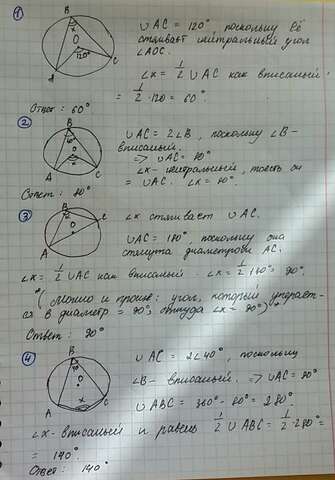 1
B
x
O
120°
A
C
∪AC = 120° поскольку её
стягивает центральный угол
∠AOC.
∠x = 1/2 ∪AC как вписаный.
= 1/2 · 120 = 60°.
Ответ: 60°
2
B
O
x
A
C
∪AC = 2∠B, поскольку ∠B -
вписаный.
=> ∪AC = 80°
∠x - центральный, тоесть он
= ∪AC. ∠x = 80°.
Ответ: 80°
3
B
x
O
A
C
∠x стягивает ∪AC.
∪AC = 180°, поскольку она
стянута диаметром AC.
∠x = 1/2 ∪AC как вписаный. ∠x = 1/2 180° = 90°.
*(Можно и проще: угол, который упирает-
ся в диаметр = 90°, откуда ∠x = 90°)*
Ответ: 90°
4
B
40°
O
x
A
C
∪AC = 2∠40°, поскольку
∠B - вписаный. => ∪AC = 80°
∪ABC = 360° - 80° = 280°
∠x - вписаный и равен 1/2 ∪ABC = 1/2 · 280° =
= 140°.
Ответ: 140°